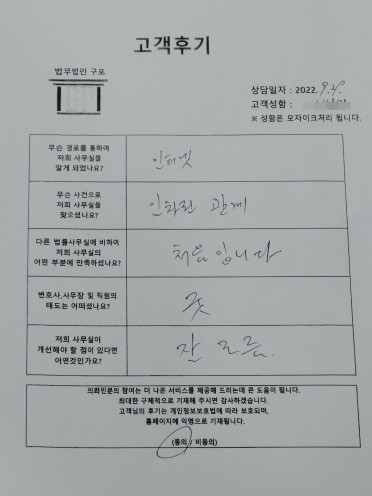 고객후기
법무법인 구포
상담일자 : 2022. 9. 2
고객성함 :
※ 성함은 모자이크처리 됩니다.
무슨 경로를 통하여
저희 사무실을
알게 되었나요?
인터넷
무슨 사건으로
저희 사무실을
찾으셨나요?
인화권 관계
다른 법률사무실에 비하여
저희 사무실의
어떤 부분에 만족하셨나요?
처음입니다
변호사,사무장 및 직원의
태도는 어떠셨나요?
굿
저희 사무실이
개선해야 할 점이 있다면
어떤것인가요?
잘 모름.
의뢰인분의 참여는 더 나은 서비스를 제공해 드리는데 큰 도움이 됩니다.
최대한 구체적으로 기재해 주시면 감사하겠습니다.
고객님의 후기는 개인정보보호법에 따라 보호되며,
홈페이지에 익명으로 기재됩니다.
(동의 / 비동의)